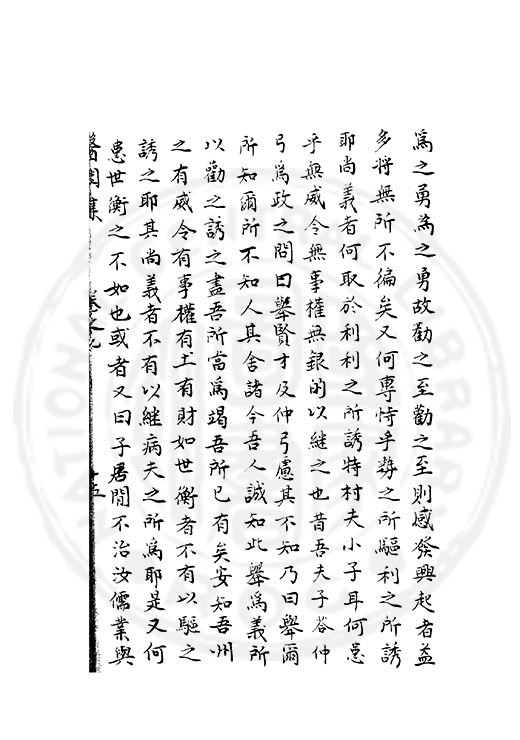 為之勇為之勇故勸之至勸之至則感發興起者益
多將無所不徧矣又何專恃乎勢之所驅利之所誘
耶尚義者何取於利利之所誘特村夫小子耳何患
乎無威令無事權無銀的以継之也昔吾夫子荅仲
弓為政之問曰舉賢才及仲弓慮其不知乃曰舉爾
所知爾所不知人其舍諸今吾人誠知此舉為義所
以勸之誘之盡吾所當為竭吾所已有矣安知吾州
之有威令有事權有土有財如世衡者不有以驅之
誘之耶其尚義者不有以継病夫之所為耶是又何
患世衡之不如也或者又曰子居閒不治汝儒業與
醫閭集 卷之九 十五